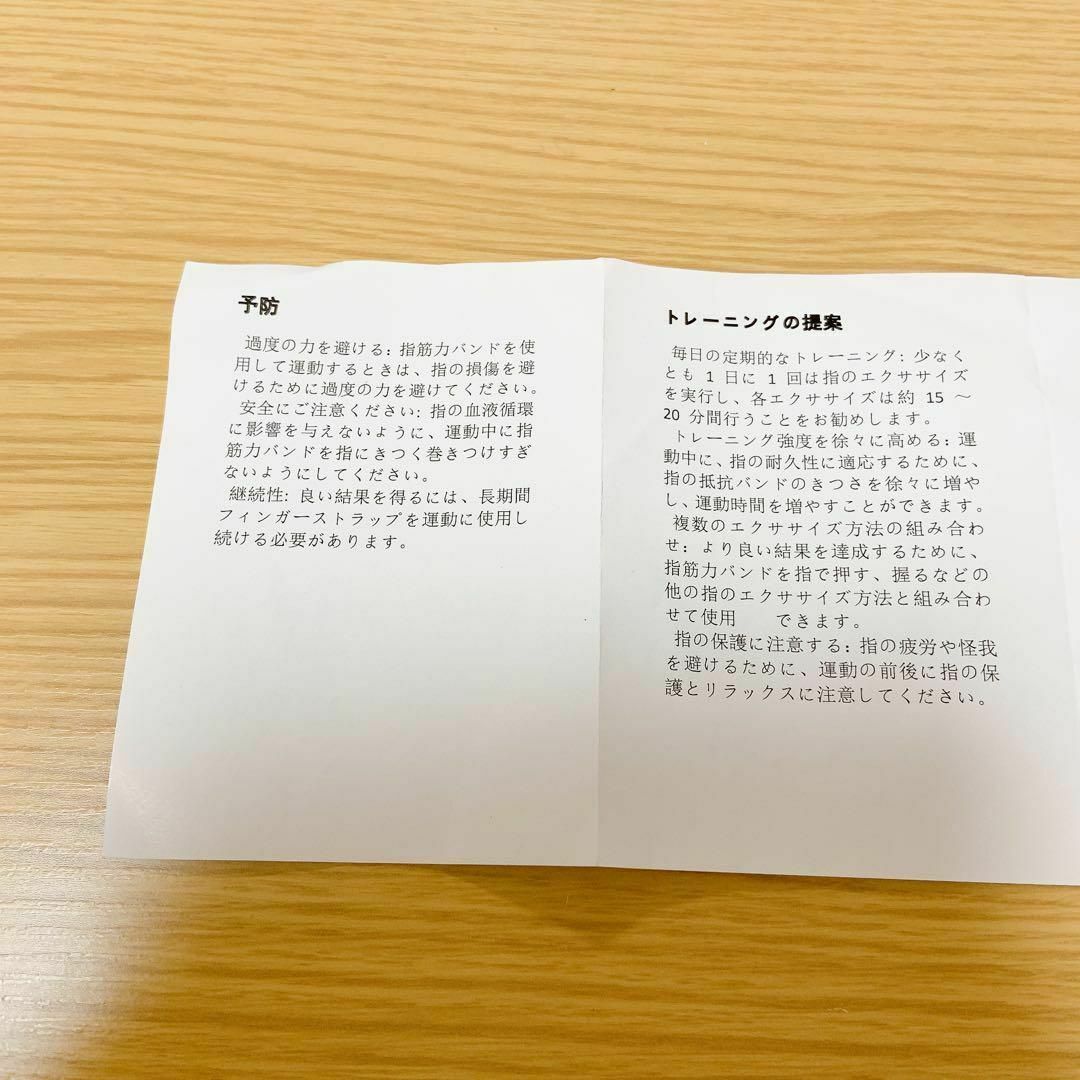 予防
過度の力を避ける: 指筋力バンドを使
用して運動するときは、指の損傷を避
けるために過度の力を避けてください。
安全にご注意ください: 指の血液循環
に影響を与えないように、運動中に指
筋力バンドを指にきつく巻きつけすぎ
ないようにしてください。
継続性: 良い結果を得るには、長期間
フィンガーストラップを運動に使用し
続ける必要があります。
トレーニングの提案
毎日の定期的なトレーニング: 少なく
とも 1 日に 1 回は指のエクササイズ
を実行し、各エクササイズは約 15 ～
20 分間行うことをお勧めします。
トレーニング強度を徐々に高める: 運
動中に、指の耐久性に適応するために、
指の抵抗バンドのきつさを徐々に増や
し、運動時間を増やすことができます。
複数のエクササイズ方法の組み合わ
せ: より良い結果を達成するために、
指筋力バンドを指で押す、握るなどの
他の指のエクササイズ方法と組み合わ
せて使用　　できます。
指の保護に注意する: 指の疲労や怪我
を避けるために、運動の前後に指の保
護とリラックスに注意してください。